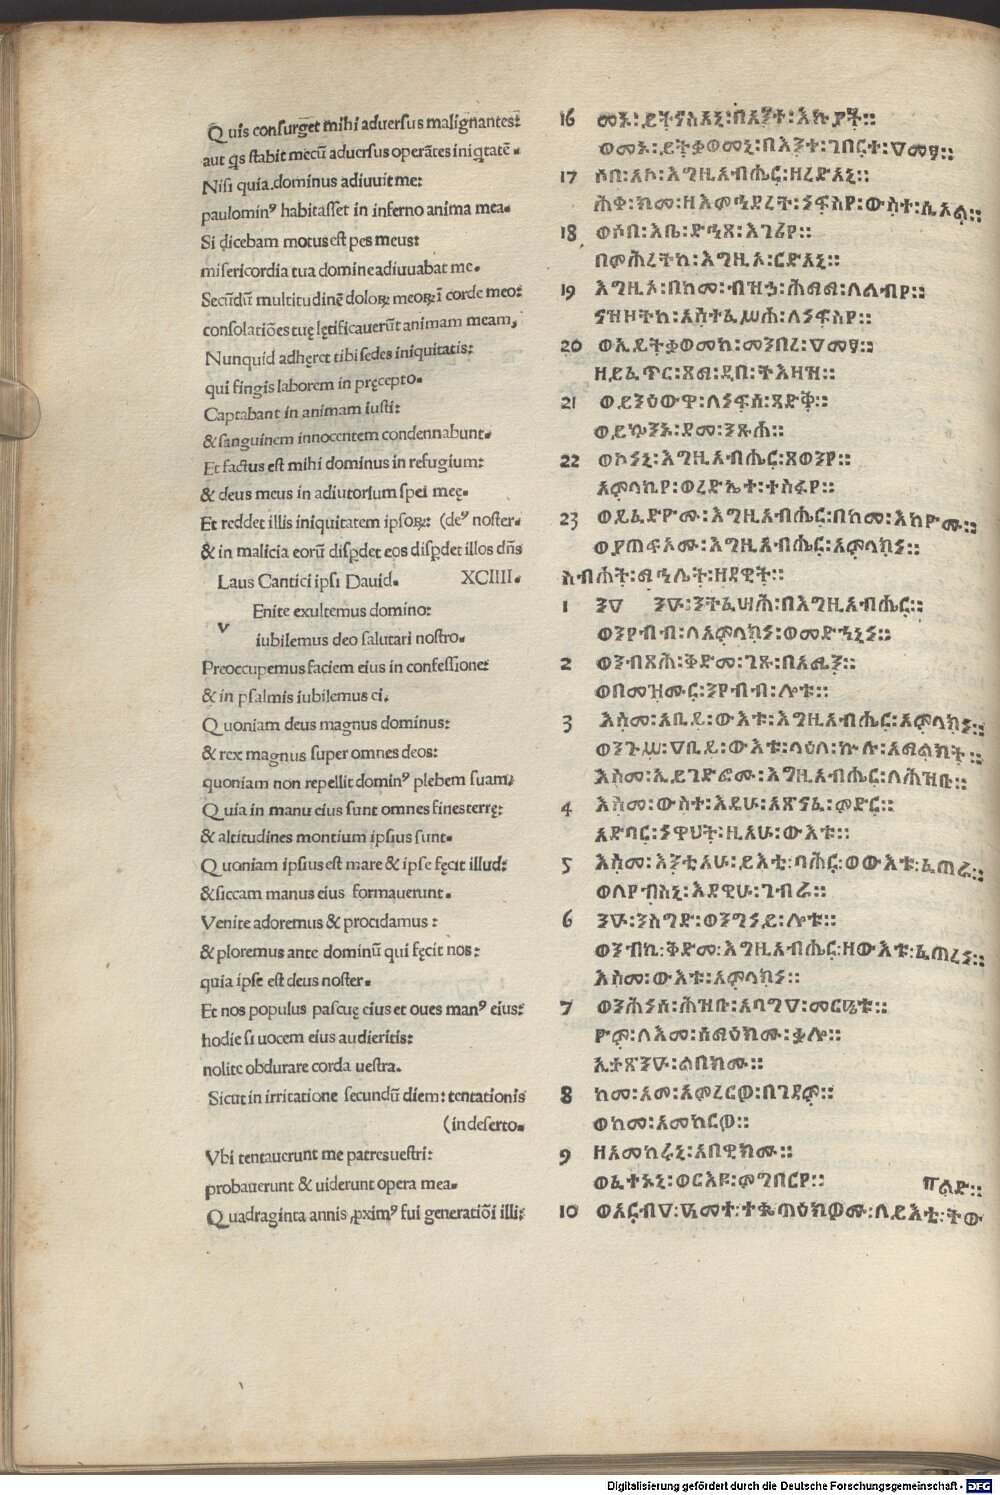 Quis consurget mihi adversus malignantes:
aut qs stabit mecū adversus operātes iniqtatē.
Nisi quia dominus adiuvit me:
paulominꝰ habitasset in inferno anima mea.
Si dicebam motus est pes meus:
misericordia tua domine adiuvabat me.
Secūdū multitudinē doloꝝ meoꝝ ī corde meo:
consolatiōes tuę lętificaverūt animam meam,
Nunquid adhęret tibi sedes iniquitatis:
qui fingis laborem in pręcepto.
Captabant in animam iusti:
& sanguinem innocentem condennabunt.
Et factus est mihi dominus in refugium:
& deus meus in adiutorium spei meę.
Et reddet illis iniquitatem ipsoꝝ: (deꝰ noster.
& in malicia eorū disꝑdet eos disꝑdet illos dñs
Laus Cantici ipsi David. XCIIII.
v Enite exultemus domino:
iubilemus deo salutari nostro.
Preoccupemus faciem eius in confessione:
& in psalmis iubilemus ei.
Quoniam deus magnus dominus:
& rex magnus super omnes deos:
quoniam non repellit dominꝰ plebem suam:
Quia in manu eius sunt omnes fines terrę:
& altitudines montium ipsius sunt.
Quoniam ipsius est mare & ipse fęcit illud:
& siccam manus eius formaverunt.
Venite adoremus & procidamus:
& ploremus ante dominū qui fęcit nos:
quia ipse est deus noster.
Et nos populus pascuę eius et oves manꝰ eius:
hodie si vocem eius audieritis:
nolite obdurare corda vestra.
Sicut in irritatione secundū diem: tentationis
(in deserto.
Vbi tentaverunt me patres vestri:
probaverunt & viderunt opera mea.
Quadraginta annis ꝓximꝰ fui generatiōi illi:
16 መኑ፡ይትናሥአኒ፡በእንተ፡እኩያት፡፡
ወመኑ፡ይትቃወመኒ፡በእንተ፡ገበርተ፡ዐመፃ፡፡
17 ሶበ፡አኮ፡እግዚአብሔር፡ዘረድአኒ፡፡
ሕቀ፡ከመ፡ዘእምኀደረት፡ነፍስየ፡ውስተ፡ሲኦል፡፡
18 ወሶበ፡እቤ፡ድኅፀ፡እገሪየ፡፡
በምሕረትከ፡እግዚኦ፡ርድአኒ፡፡
19 እግዚኦ፡በከመ፡ብዝኃ፡ሕማማ፡ለልብየ፡፡
ናዝዞትከ፡አስተፈሥሐ፡ለነፍስየ፡፡
20 ወኢይትቃወመከ፡መንበረ፡ዐመፃ፡፡
ዘይፈጥር፡ፃማ፡ዲበ፡ትእዛዝ፡፡
21 ወይንዕውዋ፡ለነፍሰ፡ጻድቅ፡፡
ወይኴንኑ፡ደመ፡ንጹሐ፡፡
22 ወኮነኒ፡እግዚአብሔር፡ፀወንየ፡፡
አምላኪየ፡ወረድኤተ፡ተስፋየ፡፡
23 ወይፈድዮሙ፡እግዚአብሔር፡በከመ፡እከዮሙ፡፡
ወያጠፍኦሙ፡እግዚአብሔር፡አምላክነ፡፡
ስብሐት፡ማኅሌት፡ዘዳዊት፡፡
1 ንዑ ንዑ፡ንትፈሣሕ፡በእግዚአብሔር፡፡
ወንየብብ፡ለአምላክነ፡ወመድኀኒነ፡፡
2 ወንብጻሕ፡ቅድመ፡ገጹ፡በአሚን፡፡
ወበመዝሙር፡ንየብብ፡ሎቱ፡፡
3 እስመ፡ዐቢይ፡ውእቱ፡እግዚአብሔር፡አምላክነ፡፡
ወንጉሥ፡ዐቢይ፡ውእቱ፡ላዕለ፡ኵሉ፡አማልክት፡፡
እስመ፡ኢይገድፎሙ፡እግዚአብሔር፡ለሕዝቡ፡፡
4 እስመ፡ውስተ፡እዴሁ፡አጽናፈ፡ምድር፡፡
አድባር፡ነዋኀት፡ዚአሁ፡ውእቱ፡፡
5 እስመ፡እንቲአሁ፡ይእቲ፡ባሕር፡ወውእቱ፡ፈጠራ፡፡
ወለየብስኒ፡እደዊሁ፡ገብራ፡፡
6 ንዑ፡ንስግድ፡ወንግነይ፡ሎቱ፡፡
ወንብኪ፡ቅድመ፡እግዚአብሔር፡ዘውእቱ፡ፈጠረነ፡፡
እስመ፡ውእቱ፡አምላክነ፡፡
7 ወንሕነሰ፡ሕዝቡ፡አባግዐ፡መርዔቱ፡፡
ዮም፡ለእመ፡ሰማዕክሙ፡ቃሎ፡፡
ኢታጽንዑ፡ልበክሙ፡፡
8 ከመ፡አመ፡አምረርዎ፡በገዳም፡፡
ወከመ፡አመከርዎ፡፡
9 ዘአመከሩኒ፡አበዊክሙ፡፡
ወፈተኑኒ፡ወርእዩ፡ምግባርየ፡፡ ፐልድ፡፡
10 ወአርብዐ፡ዓመተ፡ተቈጣዕክዎሙ፡ለይእቲ፡ትው
Digitalisierung gefördert durch die Deutsche Forschungsgemeinschaft - DFG